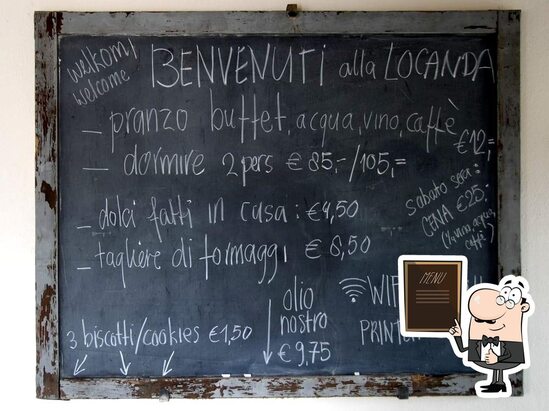 welkom!
welcome
BENVENUTi alla LOCANDA
– pranzo buffet, acqua, vino, caffè
€12,-
– dormire 2 pers €85,-/105,=
sabato sera:
CENA €25,-
(¼ vino, acqua,
caffè)
– dolci fatti in casa: €4,50
– tagliere di formaggi €8,50
olio
nostro
€9,75
WIF
PRINTE
3 biscotti/cookies €1,50
MENU